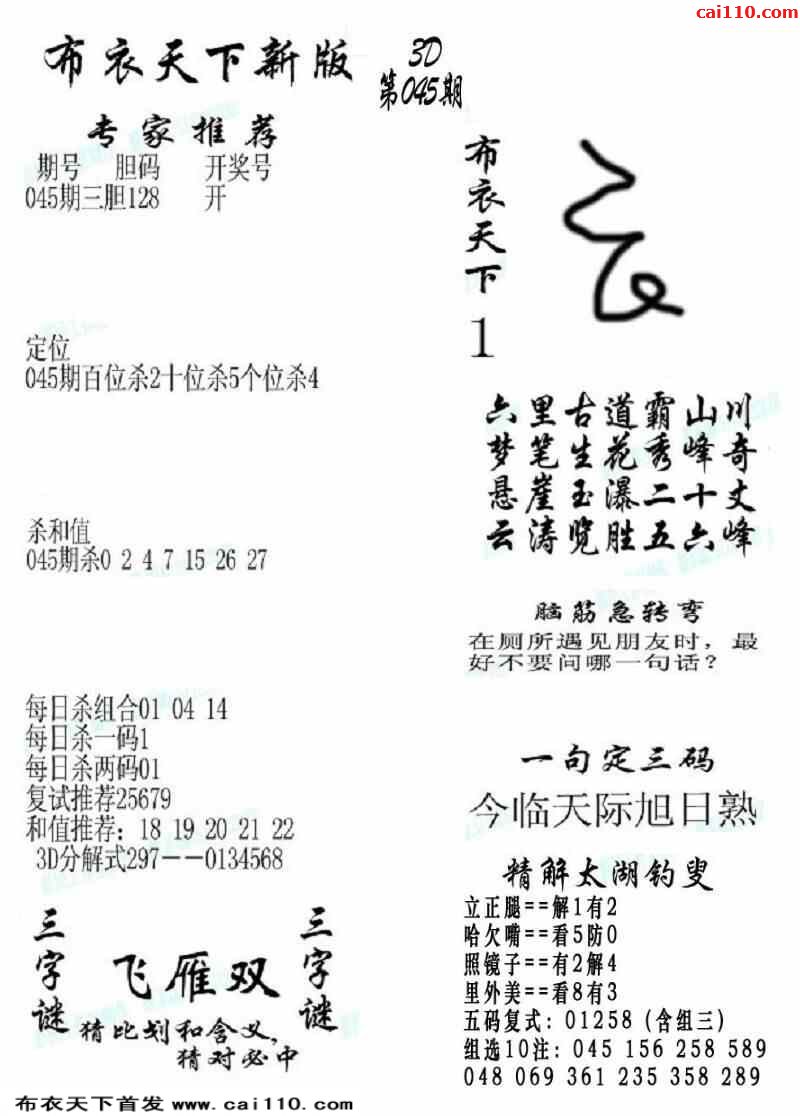 cai110.com
布衣天下新版
3D
第045期
专家推荐
期号 胆码 开奖号
045期三胆128 开
定位
045期百位杀2十位杀5个位杀4
杀和值
045期杀0 2 4 7 15 26 27
每日杀组合01 04 14
每日杀一码1
每日杀两码01
复试推荐25679
和值推荐：18 19 20 21 22
3D分解式297——0134568
三字谜
飞雁双
三字谜
猜比划和含义，
猜对必中
布衣天下
1
六里古道霸山川
梦笔生花秀峰奇
悬崖玉瀑二十丈
云涛览胜五六峰
脑筋急转弯
在厕所遇见朋友时，最
好不要问哪一句话？
一句定三码
今临天际旭日熟
精解太湖钓叟
立正腿==解1有2
哈欠嘴==看5防0
照镜子==有2解4
里外美==看8有3
五码复式：01258（含组三）
组选10注：045 156 258 589
048 069 361 235 358 289
布衣天下首发 www.cai110.com